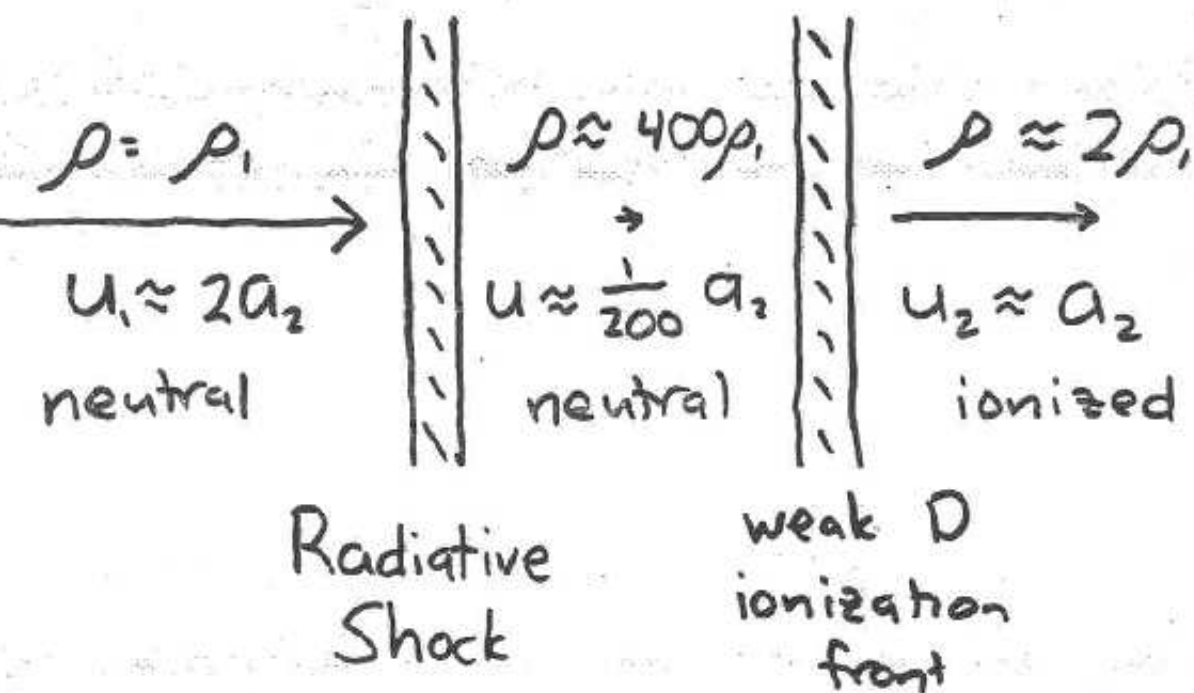 ρ = ρ₁
u₁ ≈ 2a₂
neutral
ρ ≈ 400ρ₁
u ≈ 1/200 a₂
neutral
ρ ≈ 2ρ₁
u₂ ≈ a₂
ionized
Radiative
Shock
weak D
ionization
front